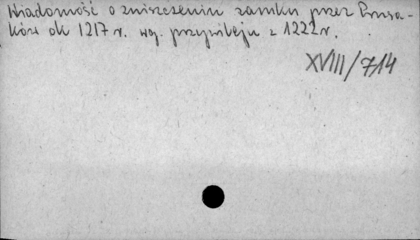 Wiadomość o zniszczeniu zamku przez Prusa-
ków ok 1217 r. wg. przywileju z 1222 r.
XVIII/714